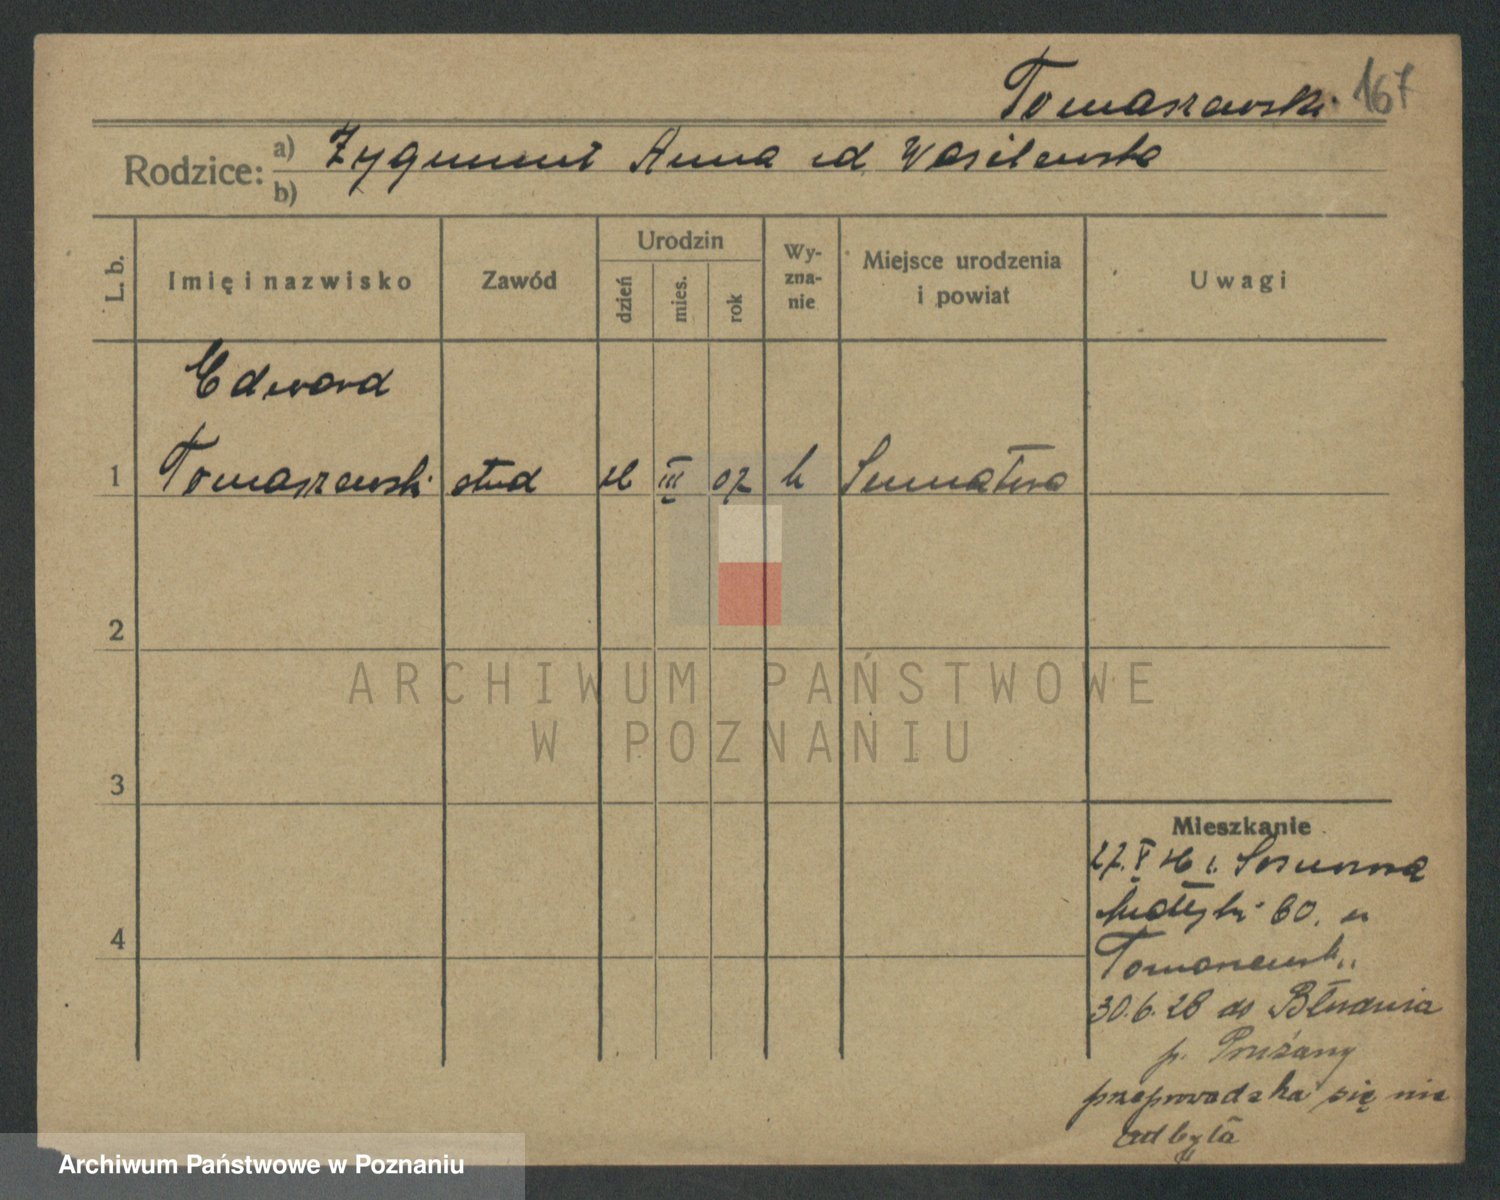 Tomaszewski 167
Rodzice: a) Zygmunt Anna Wasilewska
b)
L. b.
Imię i nazwisko
Zawód
Urodzin
dzień
mies.
rok
Wy-
zna-
nie
Miejsce urodzenia
i powiat
Uwagi
Edward
1 Tomaszewski stud III 07 Sumatra
2
3
4
Mieszkanie
27. V
60.
Tomaszewsk..
30.6.28 do Błudnia
p. Prużany
przeprowadzka się nie
odbyła
ARCHIWUM PAŃSTWOWE
W POZNANIU
Archiwum Państwowe w Poznaniu